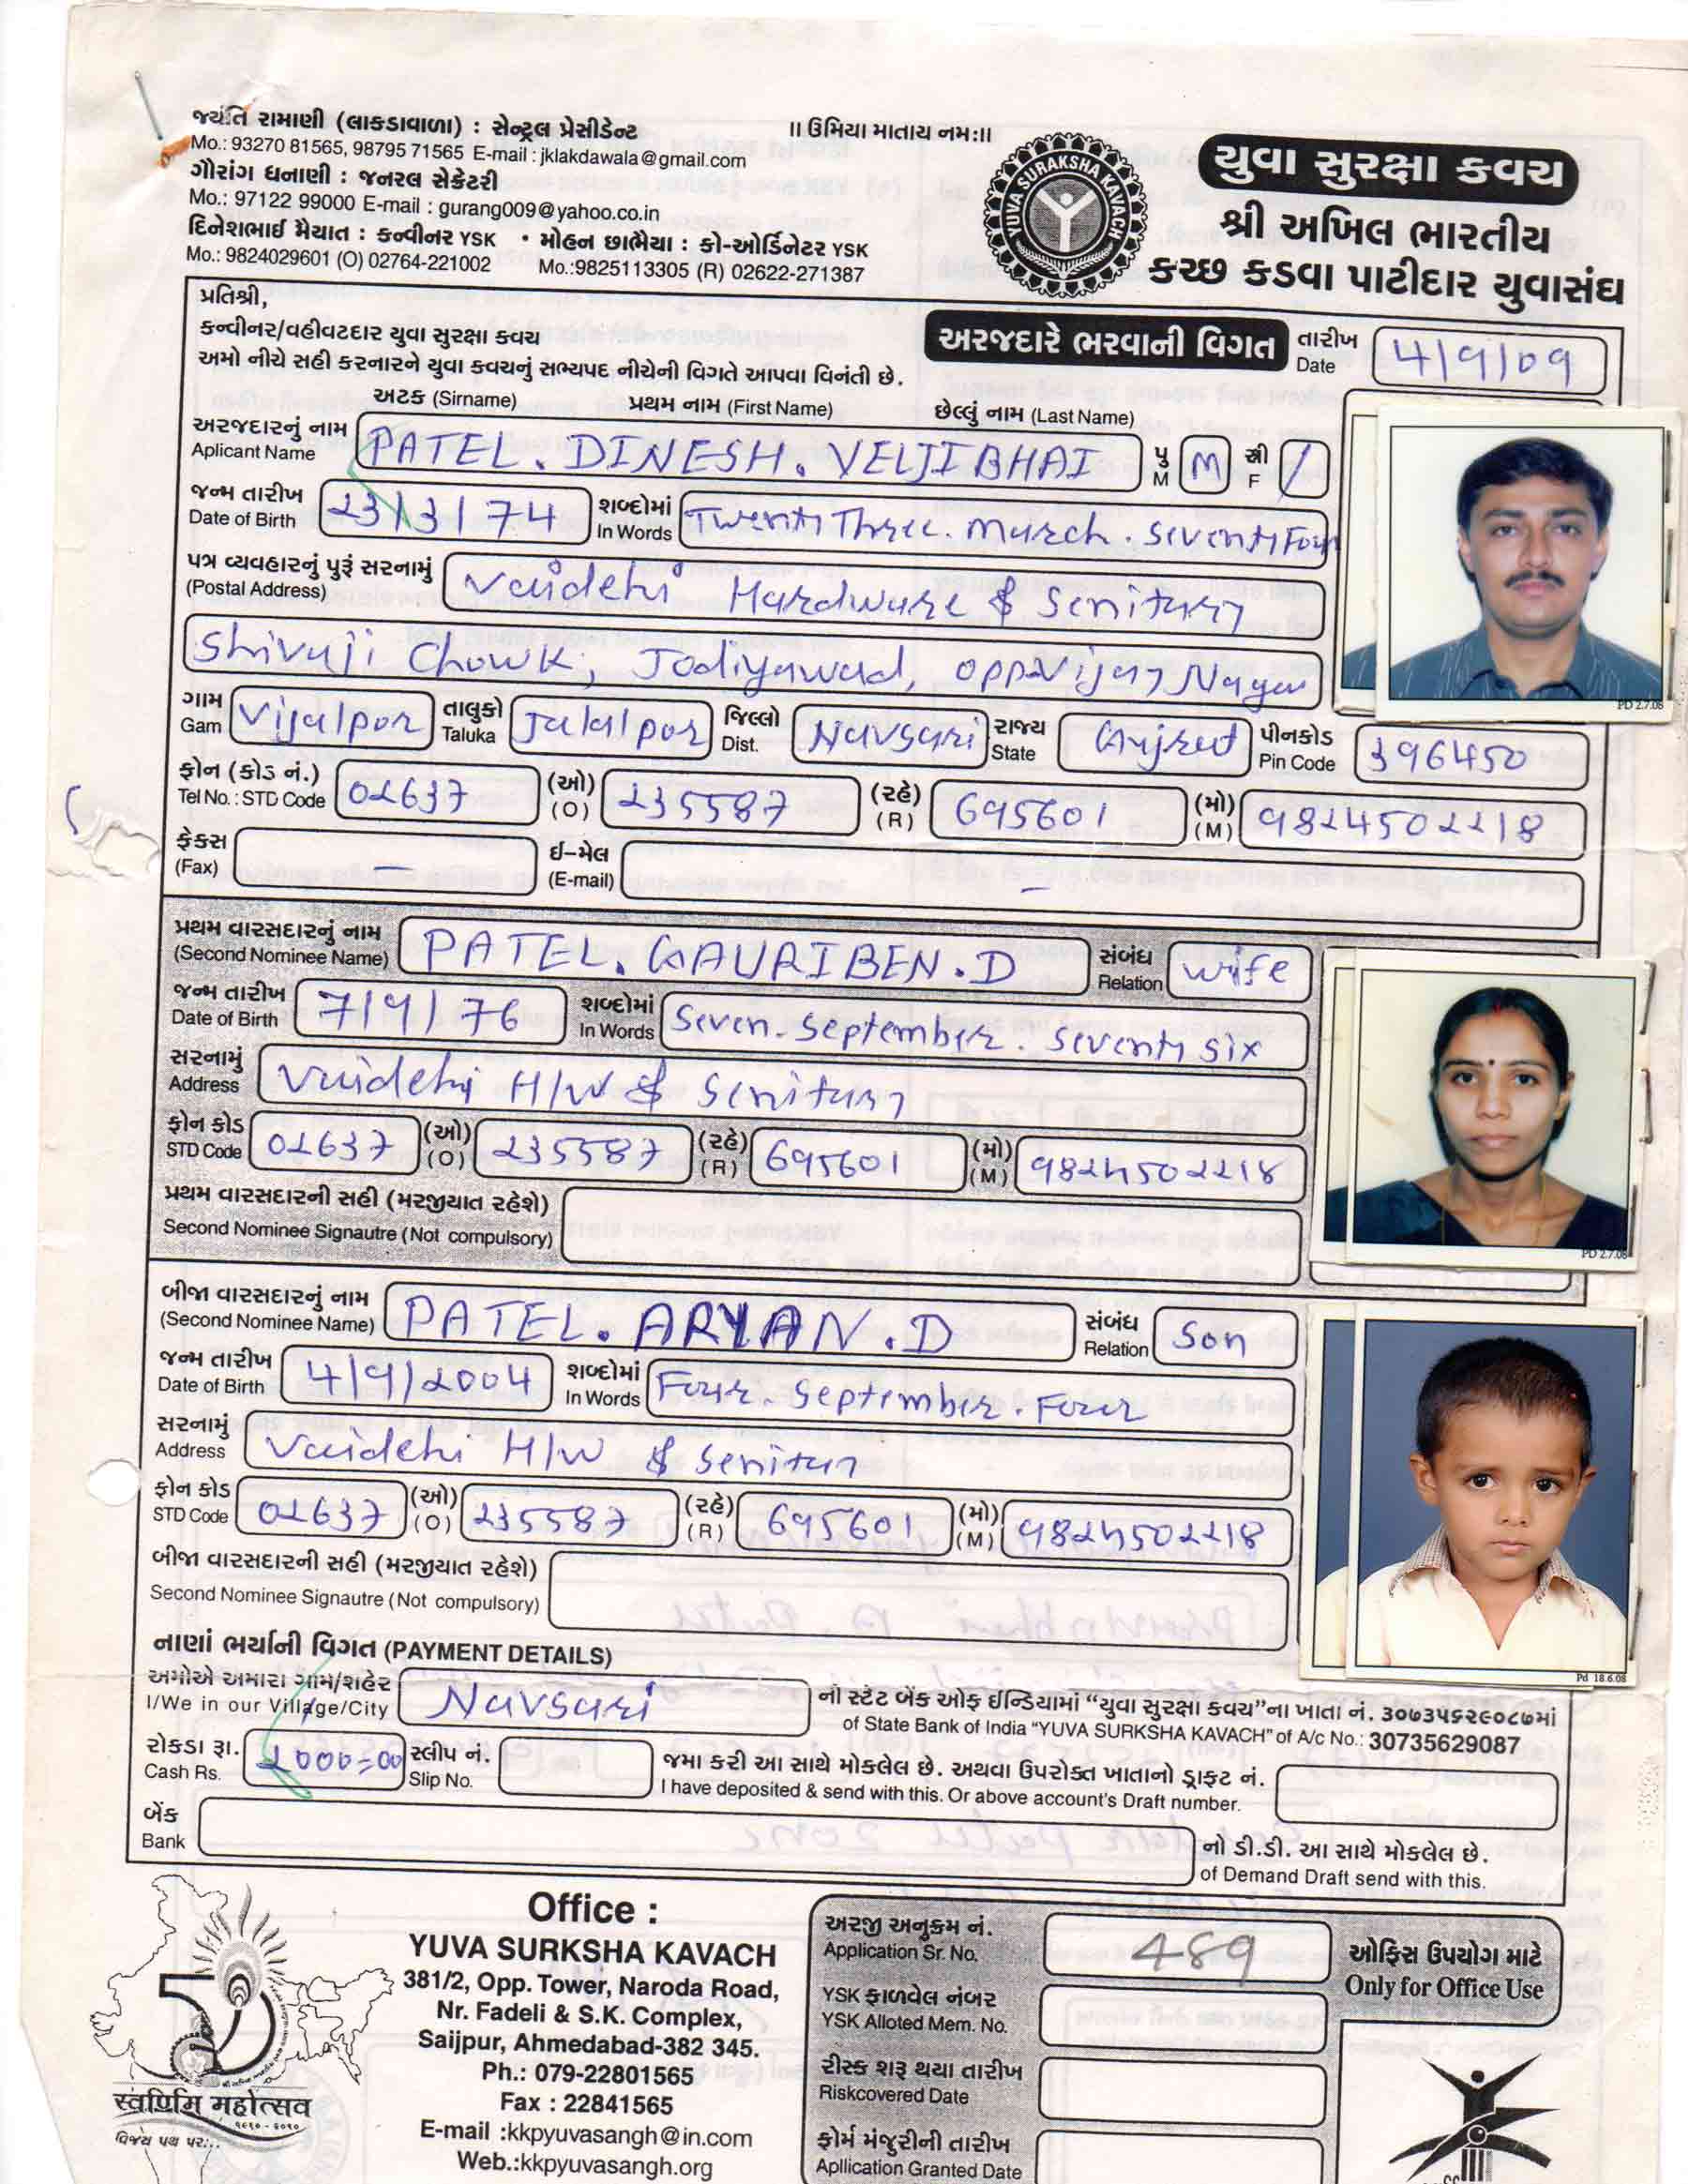 જયંતિ રામાણી (લાકડાવાળા) : સેન્ટ્રલ પ્રેસીડેન્ટ
Mo.: 93270 81565, 98795 71565 E-mail : jklakdawala@gmail.com
ગૌરાંગ ધનાણી : જનરલ સેક્રેટરી
Mo.: 97122 99000 E-mail : gurang009@yahoo.co.in
દિનેશભાઈ મૈયાત : કન્વીનર YSK • મોહન છાભૈયા : કો-ઓર્ડિનેટર YSK
Mo.: 9824029601 (O) 02764-221002 Mo.:9825113305 (R) 02622-271387
॥ ઉમિયા માતાય નમઃ॥
YUVA SURAKSHA KAVACH
યુવા સુરક્ષા કવચ
શ્રી અખિલ ભારતીય
કચ્છ કડવા પાટીદાર યુવાસંઘ
પ્રતિશ્રી,
કન્વીનર/વહીવટદાર યુવા સુરક્ષા કવચ
અમો નીચે સહી કરનારને યુવા કવચનું સભ્યપદ નીચેની વિગતે આપવા વિનંતી છે.
અરજદારે ભરવાની વિગત તારીખ Date 4/9/09
અટક (Sirname) પ્રથમ નામ (First Name) છેલ્લું નામ (Last Name)
અરજદારનું નામ Aplicant Name PATEL. DINESH. VELJIBHAI પુ M M સ્ત્રી F /
જન્મ તારીખ Date of Birth 23/3/74 શબ્દોમાં In Words Twenty Three. March. Seventy Four
પત્ર વ્યવહારનું પુરૂં સરનામું (Postal Address) Vaidehi Hardware & Senitury
Shivaji Chowk, Jodiyawad, opp Vijay Nagar
PD 2.7.08
ગામ Gam Vijalpor તાલુકો Taluka Jalalpor જિલ્લો Dist. Navsari રાજ્ય State Gujrat પીનકોડ Pin Code 396450
ફોન (કોડ નં.) Tel No. : STD Code 02637 (ઓ) (O) 235587 (રહે) (R) 695601 (મો) (M) 9824502218
ફેક્સ (Fax) — ઈ-મેલ (E-mail) —
પ્રથમ વારસદારનું નામ (Second Nominee Name) PATEL. GAURIBEN. D સંબંધ Relation wife
જન્મ તારીખ Date of Birth 7/9/76 શબ્દોમાં In Words Seven. September. Seventy six
સરનામું Address Vaidehi H/W & Senitury
ફોન કોડ STD Code 02637 (ઓ) (O) 235587 (રહે) (R) 695601 (મો) (M) 9824502218
પ્રથમ વારસદારની સહી (મરજીયાત રહેશે)
Second Nominee Signautre (Not compulsory)
PD 2.7.08
બીજા વારસદારનું નામ (Second Nominee Name) PATEL. ARYAN. D સંબંધ Relation Son
જન્મ તારીખ Date of Birth 4/9/2004 શબ્દોમાં In Words Four. September. Four
સરનામું Address Vaidehi H/W & Senitury
ફોન કોડ STD Code 02637 (ઓ) (O) 235587 (રહે) (R) 695601 (મો) (M) 9824502218
બીજા વારસદારની સહી (મરજીયાત રહેશે)
Second Nominee Signautre (Not compulsory)
Pd 18.6.08
નાણાં ભર્યાની વિગત (PAYMENT DETAILS)
અમોએ અમારા ગામ/શહેર I/We in our Village/City Navsari ની સ્ટેટ બેંક ઓફ ઈન્ડિયામાં "યુવા સુરક્ષા કવચ"ના ખાતા નં. ૩૦૭૩૫૬૨૯૦૮૭માં
of State Bank of India "YUVA SURKSHA KAVACH" of A/c No.: 30735629087
રોકડા રૂા. Cash Rs. 2000=00 સ્લીપ નં. Slip No. જમા કરી આ સાથે મોકલેલ છે. અથવા ઉપરોક્ત ખાતાનો ડ્રાફ્ટ નં.
I have deposited & send with this. Or above account's Draft number.
બેંક Bank નો ડી.ડી. આ સાથે મોકલેલ છે.
of Demand Draft send with this.
સ્વર્ણિમ મહોત્સવ
૧૯૬૦ - ૨૦૧૦
વિજય પથ પર...
Office :
YUVA SURKSHA KAVACH
381/2, Opp. Tower, Naroda Road,
Nr. Fadeli & S.K. Complex,
Saijpur, Ahmedabad-382 345.
Ph.: 079-22801565
Fax : 22841565
E-mail :kkpyuvasangh@in.com
Web.:kkpyuvasangh.org
અરજી અનુક્રમ નં. Application Sr. No. 489
ઓફિસ ઉપયોગ માટે
Only for Office Use
YSK ફાળવેલ નંબર
YSK Alloted Mem. No.
રીસ્ક શરૂ થયા તારીખ
Riskcovered Date
ફોર્મ મંજુરીની તારીખ
Apllication Granted Date